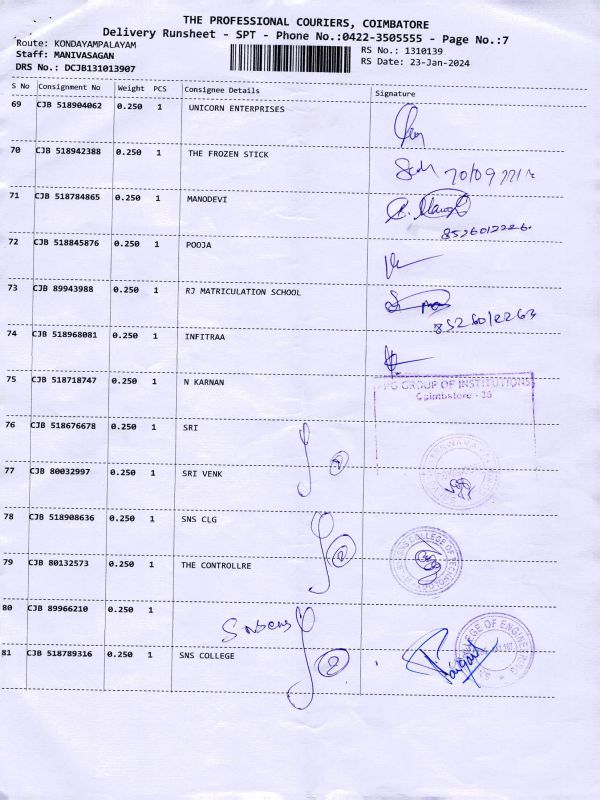 THE PROFESSIONAL COURIERS, COIMBATORE
Delivery Runsheet - SPT - Phone No.:0422-3505555 - Page No.:7
Route: KONDAYAMPALAYAM RS No.: 1310139
Staff: MANIVASAGAN RS Date: 23-Jan-2024
DRS No.: DCJB131013907
S No Consignment No Weight PCS Consignee Details Signature
69 CJB 518904062 0.250 1 UNICORN ENTERPRISES
70 CJB 518942388 0.250 1 THE FROZEN STICK
71 CJB 518784865 0.250 1 MANODEVI
8526012226
72 CJB 518845876 0.250 1 POOJA
73 CJB 89943988 0.250 1 RJ MATRICULATION SCHOOL
8526012263
74 CJB 518968081 0.250 1 INFITRAA
75 CJB 518718747 0.250 1 N KARNAN
PG GROUP OF INSTITUTIONS
Coimbatore - 35
76 CJB 518676678 0.250 1 SRI
77 CJB 80032997 0.250 1 SRI VENK
78 CJB 518908636 0.250 1 SNS CLG
79 CJB 80132573 0.250 1 THE CONTROLLRE
COLLEGE OF TECHNOLOGY
80 CJB 89966210 0.250 1
81 CJB 518789316 0.250 1 SNS COLLEGE
COLLEGE OF ENGINEERING